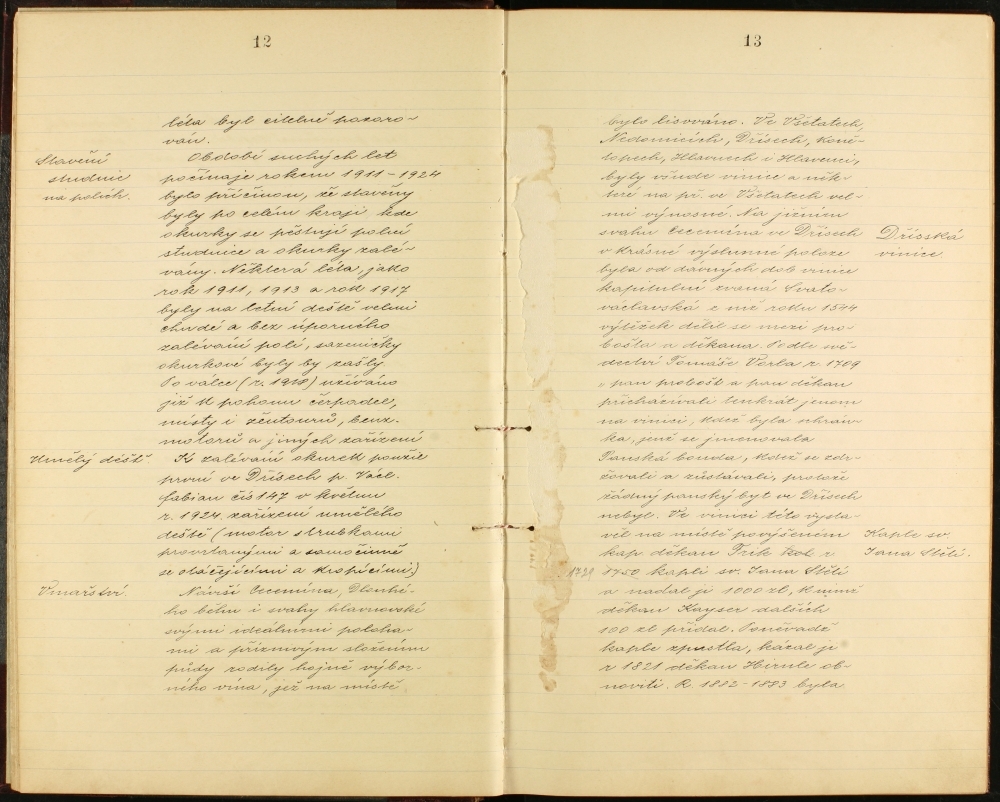 12
léta byl citelně pozoro-
ván.
Stavění
studnic
na polích.
Období suchých let
počínaje rokem 1911-1924
bylo příčinou, že stavěny
byly po celém kraji kde
okurky se pěstují polní
studnice a okurky zalé-
vány. Některá léta, jako
rok 1911, 1913 a rok 1917
byly na letní deště velmi
chudé a bez úporného
zalévání polí, sazeničky
okurkové byly by zašly.
Po válce (r. 1918) užíváno
již k pohonu čerpadel,
místy i žentourů, benz.
motorů a jiných zařízení
Umělý déšť
K zalévání okurek použil
první ve Dřísech p. Václ.
Fabian čís 147 v květnu
r. 1924 zařízení umělého
deště (motor s trubkami
provrtanými a samočinně
se otáčejícími a kropícími.)
Vinařství.
Návrší Cecemína, Dlouhé-
ho běhu i svahy hlavnovské
svými ideálními poloha-
mi a příznivým složením
půdy rodily hojně výbor-
ného vína, jež na místě
13
bylo lisováno. Ve Všetatech,
Nedomicích, Dřísech, Koně-
topech, Hlavnech i Hlavenci,
byly všude vinice a někt-
teré na př. ve Všetatech vel-
mi výnosné. Na jižním
svahu Cecemína ve Dřísech
Dřísská
vinice.
v krásné výslunné poloze
byla od dávných dob vinice
kapitulní zvaná Svato-
václavská z níž roku 1544
výtěžek dělil se mezi pro-
bošta a děkana. Podle svě-
dectví Tomáše Verla r. 1709
pan probošt a pan děkan
přicházívali tenkrát jenom
na vinici, kdež byla schrán-
ka, jenž se jmenovala
Panská bouda, kdež se zdr-
žovali a zůstávali, protože
žádný panský byt ve Dřísech
nebyl. Ve vinici této vysta-
věl na místě povýšeném
Kaple sv.
Jana Stětí.
kap děkan Trik kol r
1729 1750 kapli sv. Jana Stětí
a nadal ji 1000 zl, k nimž
děkan Kayser dalších
100 zl přidal. Poněvadž
kaple zpustla, kázal ji
r 1821 děkan Hirnle ob-
noviti. R. 1882-1883 byla